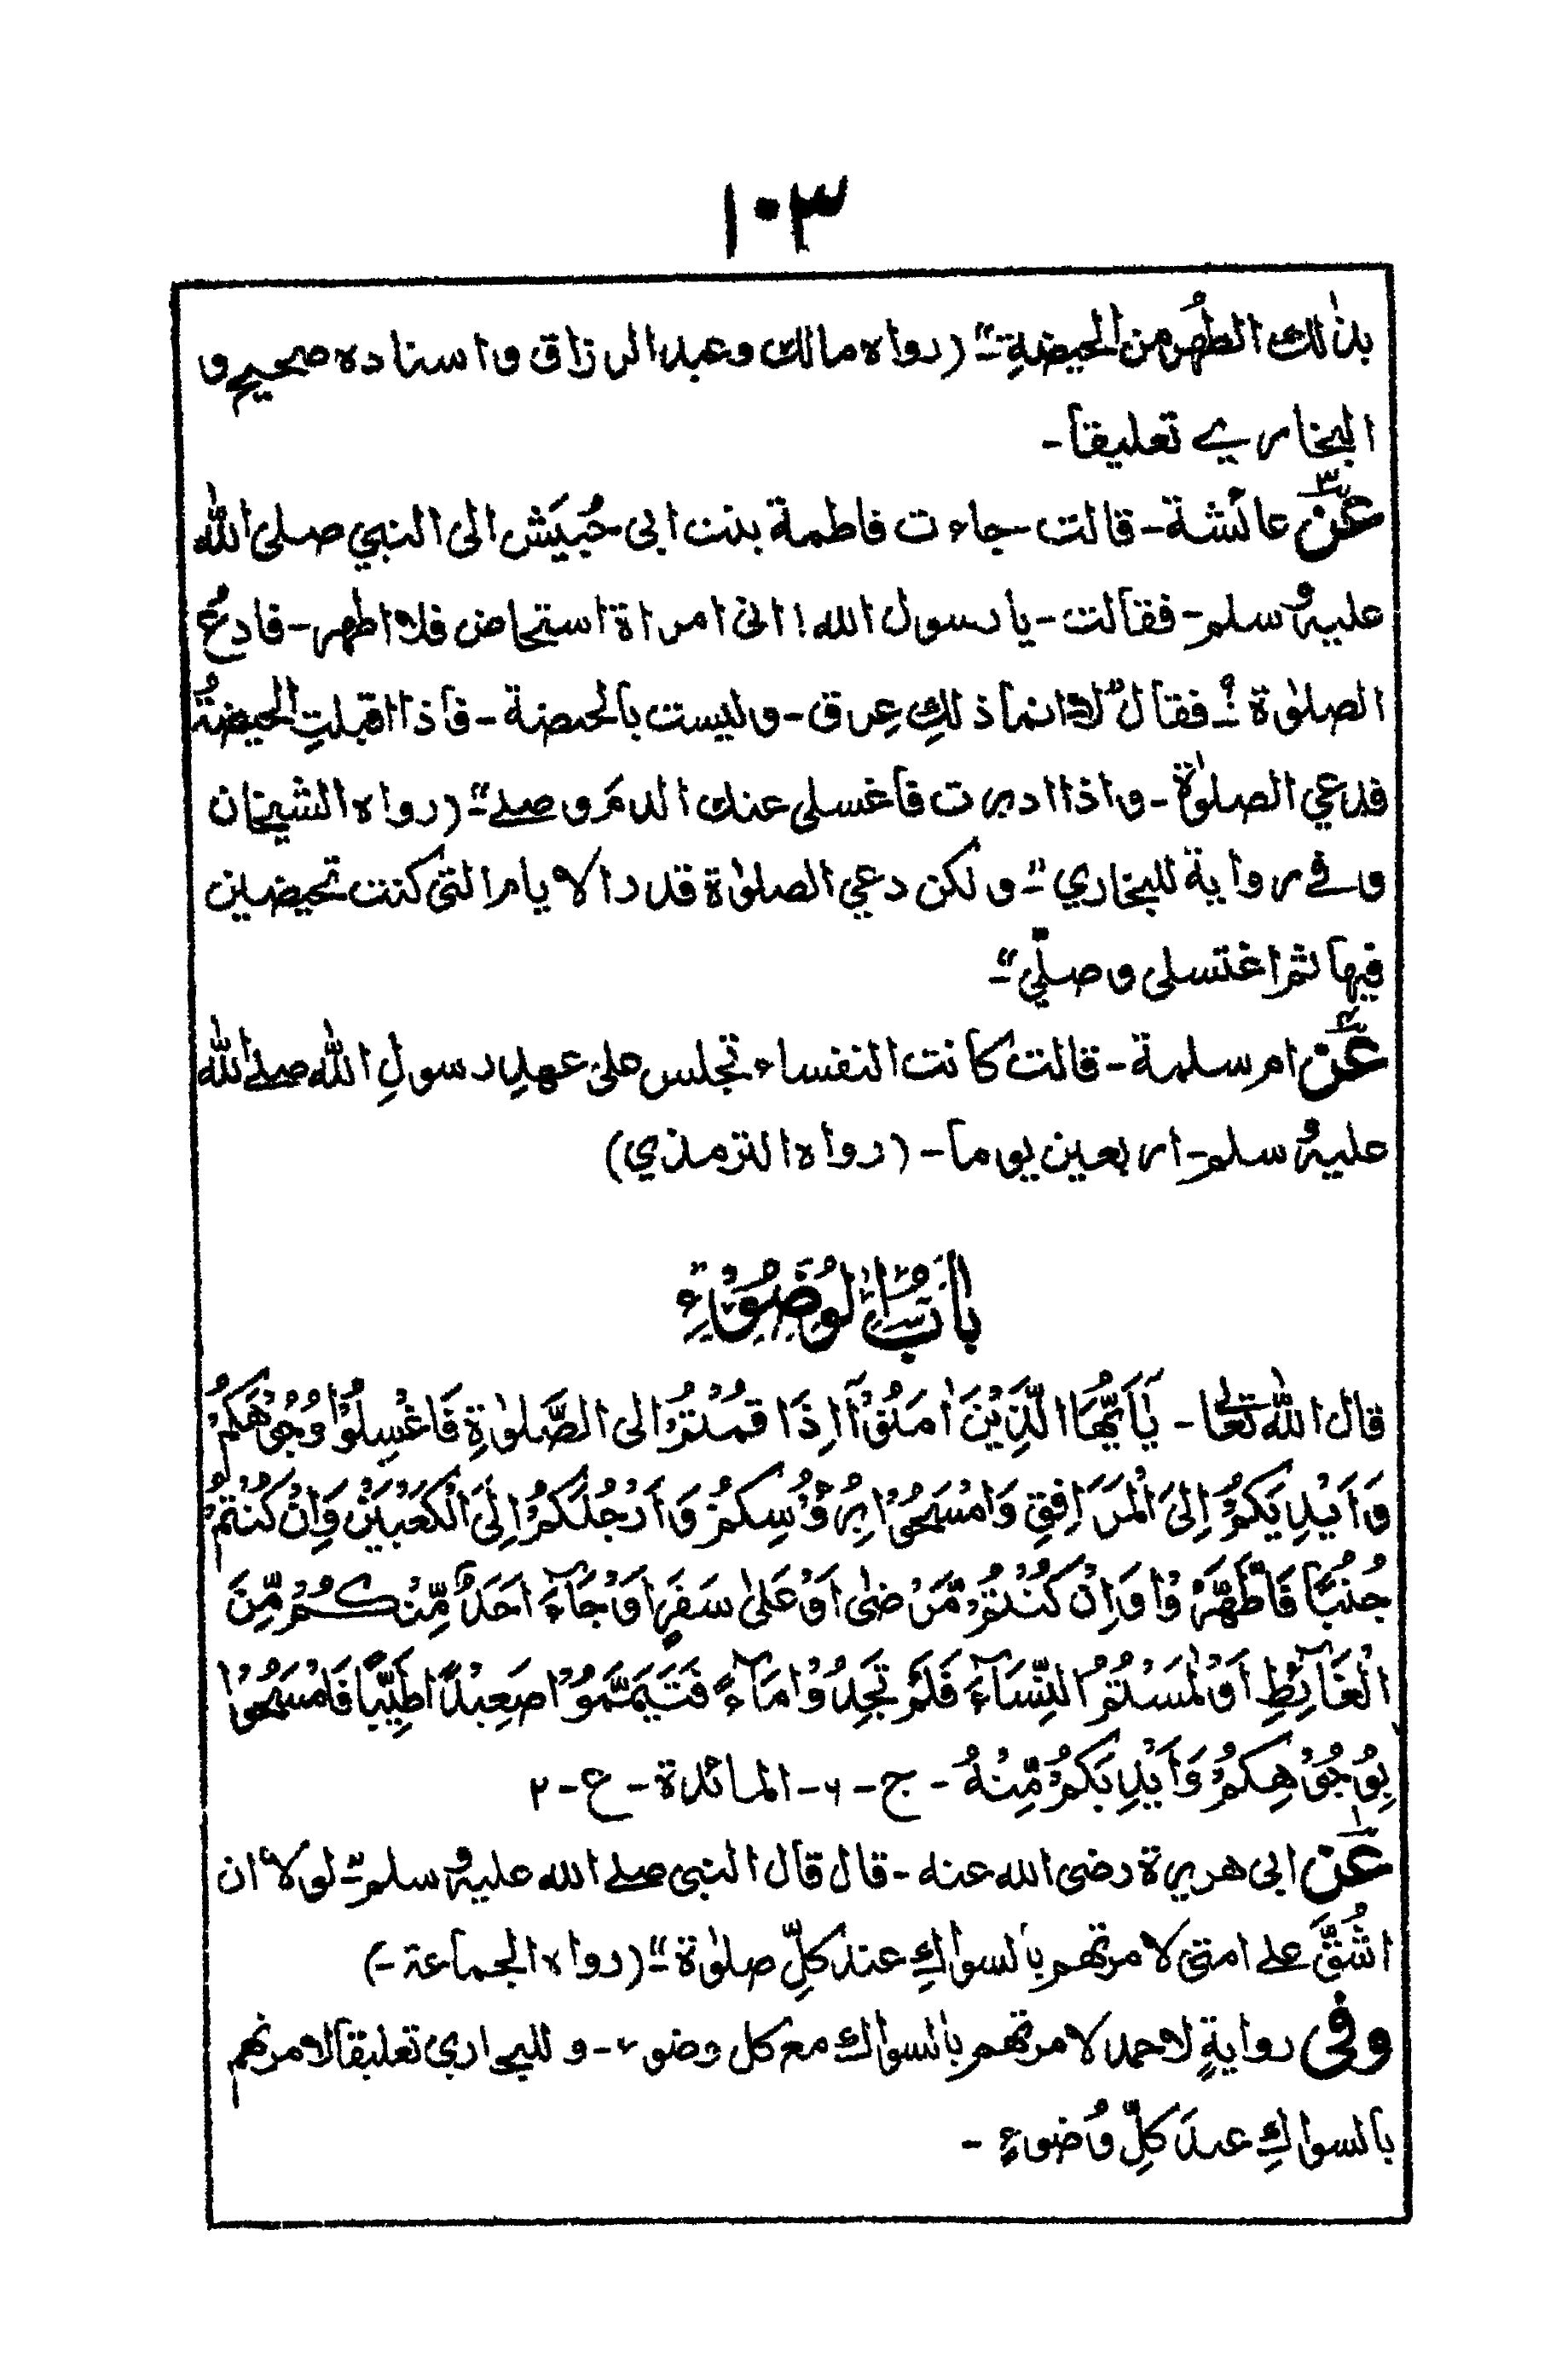 ١٠٣
بذٰلك الطُهر من الحيضةِ ـ" (رواه مالك وعبد الرزاق واسناده صحيح و
البخاري تعليقا-
عَن٣ عائشة- قالت جاءت فاطمة بنت ابى حُبَيَش الى النبي صلى الله
عليه و سلم- فقالت- يا رسول الله! انى امراة استحاض فلا اطهر- فادعُ
الصلوٰة ؟ـ فقال" لا انما ذلكِ عِرق- وليست بالحيضة- فاذا اقبلتِ الحيضةُ
فدعي الصلوٰة- واذا ادبرت فاغسلى عنك الدمَ وصلےـ" (رواه الشيخان
وفے رواية للبخاري ـ" ولكن دعي الصلوٰة قدر الايام التى كنت تحيضين
فيها ثم اغتسلى وصلّيـ"
عَن٤ ام سلمة- قالت كانت النفساء تجلس على عهدِ رسولِ الله صلے الله
عليه و سلم- اربعين يوما- (رواه الترمذي)
بَابُ الوُضُوْءِ
قال الله تعالٰى- يٰاَيُّهَا الَّذِيْنَ اٰمَنُوْٓا اِذَا قُمْتُمْ الى الصَّلوٰةِ فَاغْسِلُوْا وُجُوْهَكُمْ
وَاَيْدِيَكُمْ اِلىَ الْمَرَافِقِ وَامْسَحُوْا بِرُؤُسِكُمْ وَاَرْجُلَكُمْ اِلَى الْكَعْبَيْنِ وَاِنْ كُنْتُمْ
جُنُبًا فَاطَّهَّرُوْا وَاِنْ كُنْتُمْ مَّرْضٰى اَوْ عَلىٰ سَفَرٍ اَوْ جَآءَ اَحَدٌ مِّنْكُمْ مِّنَ
الْغَآئِطِ اَوْ لٰمَسْتُمُ النِّسَآءَ فَلَمْ تَجِدُوْا مَآءً فَتَيَمَّمُوْا صَعِيْدًا طَيِّبًا فَامْسَحُوْا
بِوُجُوْهِكُمْ وَاَيْدِيَكُمْ مِّنْهُ - ج-٦- المائدة- ع-٢
عَن١ ابى هريرة رضى الله عنه- قال قال النبى صلے الله عليه و سلم ـ" لولا ان
اشُقَّ علے امتى لامرتهم بالسواكِ عند كلِّ صلوٰة ـ" (رواه الجماعة-)
وفى روايةٍ لاحمد لامرتهم بالسواكِ مع كل وضوء- و للبخاري تعليقا لامرتهم
بالسواكِ عندَ كلِّ وُضوءٍ -